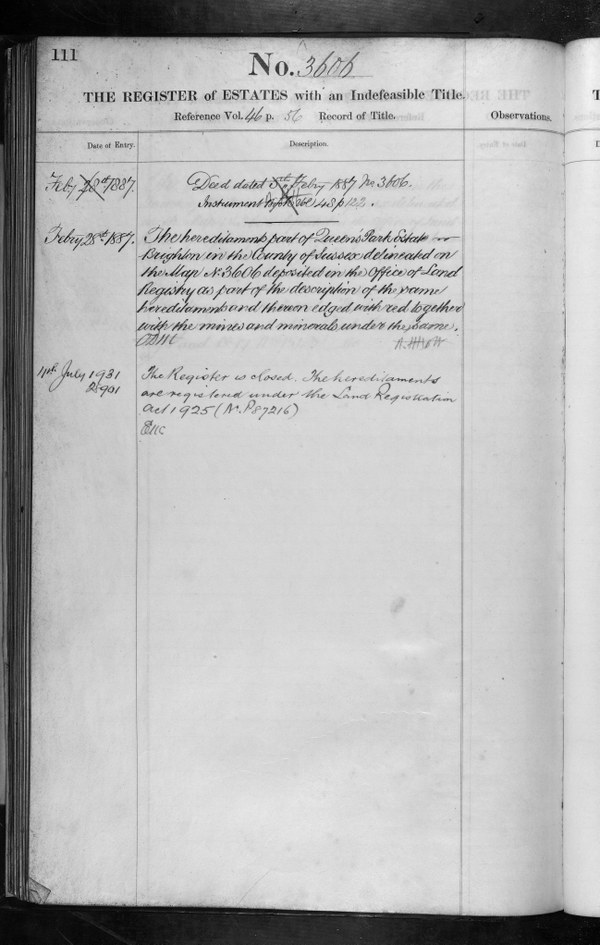 111
No. 3606
THE REGISTER of ESTATES with an Indefeasible Title.
Reference Vol. 46 p. 56 Record of Title.
Observations.
Date of Entry.
Description.
Feby 28th 1887.
Deed dated 5th Febry 1887 No 3606.
Instrument Vol 48 p 122.
Febry 28th 1887.
The hereditaments part of Queen's Park Estate
Brighton in the County of Sussex delineated on
the Map No. 3606 deposited in the Office of Land
Registry as part of the description of the same
hereditaments and thereon edged with red together
with the mines and minerals under the same.
4th July 1931
The Register is closed. The hereditaments
are registered under the Land Registration
Act 1925 (No. P.87216)